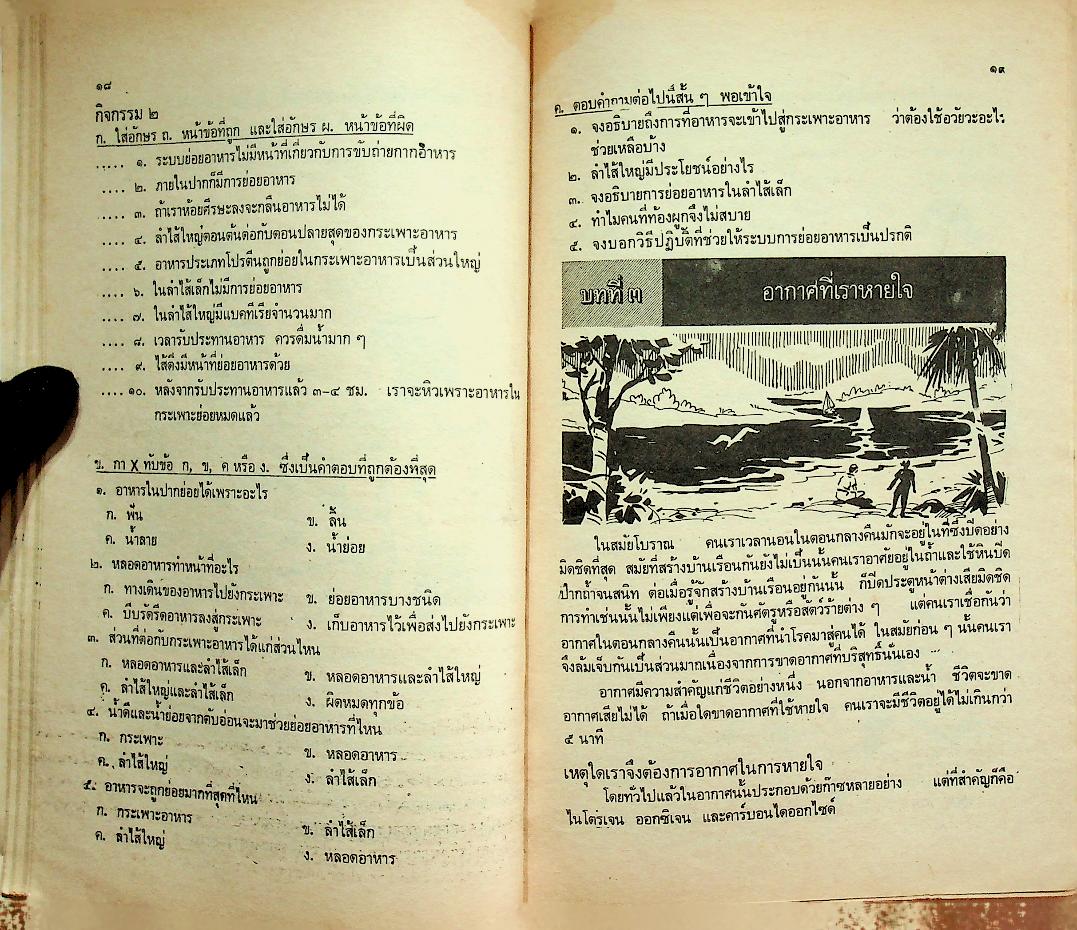 ๑๘
กิจกรรม ๒
ก. ใส่อักษร ถ. หน้าข้อที่ถูก และใส่อักษร ผ. หน้าข้อที่ผิด
..... ๑. ระบบย่อยอาหารไม่มีหน้าที่เกี่ยวกับการขับถ่ายกากอาหาร
.... ๒. ภายในปากก็มีการย่อยอาหาร
.... ๓. ถ้าเราห้อยศีรษะลงจะกลืนอาหารไม่ได้
.... ๔. ลำไส้ใหญ่ตอนต้นต่อกับตอนปลายสุดของกระเพาะอาหาร
.... ๕. อาหารประเภทโปรตีนถูกย่อยในกระเพาะอาหารเป็นส่วนใหญ่
.... ๖. ในลำไส้เล็กไม่มีการย่อยอาหาร
.... ๗. ในลำไส้ใหญ่มีแบคทีเรียจำนวนมาก
.... ๘. เวลารับประทานอาหาร ควรดื่มน้ำมาก ๆ
.... ๙. ไส้ติ่งมีหน้าที่ย่อยอาหารด้วย
.... ๑๐. หลังจากรับประทานอาหารแล้ว ๓-๔ ชม. เราจะหิวเพราะอาหารใน
กระเพาะย่อยหมดแล้ว
ข. กา X ทับข้อ ก, ข, ค หรือ ง. ซึ่งเป็นคำตอบที่ถูกต้องที่สุด
๑. อาหารในปากย่อยได้เพราะอะไร
ก. ฟัน ข. ลิ้น
ค. น้ำลาย ง. น้ำย่อย
๒. หลอดอาหารทำหน้าที่อะไร
ก. ทางเดินของอาหารไปยังกระเพาะ ข. ย่อยอาหารบางชนิด
ค. บีบรัดรีดอาหารลงสู่กระเพาะ ง. เก็บอาหารไว้เพื่อส่งไปยังกระเพาะ
๓. ส่วนที่ต่อกับกระเพาะอาหารได้แก่ส่วนไหน
ก. หลอดอาหารและลำไส้เล็ก ข. หลอดอาหารและลำไส้ใหญ่
ค. ลำไส้ใหญ่และลำไส้เล็ก ง. ผิดหมดทุกข้อ
๔. น้ำดีและน้ำย่อยจากตับอ่อนจะมาช่วยย่อยอาหารที่ไหน
ก. กระเพาะ ข. หลอดอาหาร
ค. ลำไส้ใหญ่ ง. ลำไส้เล็ก
๕. อาหารจะถูกย่อยมากที่สุดที่ไหน
ก. กระเพาะอาหาร ข. ลำไส้เล็ก
ค. ลำไส้ใหญ่ ง. หลอดอาหาร
๑๙
ค. ตอบคำถามต่อไปนี้สั้น ๆ พอเข้าใจ
๑. จงอธิบายถึงการที่อาหารจะเข้าไปสู่กระเพาะอาหาร ว่าต้องใช้อวัยวะอะไร
ช่วยเหลือบ้าง
๒. ลำไส้ใหญ่มีประโยชน์อย่างไร
๓. จงอธิบายการย่อยอาหารในลำไส้เล็ก
๔. ทำไมคนที่ท้องผูกจึงไม่สบาย
๕. จงบอกวิธีปฏิบัติที่ช่วยให้ระบบการย่อยอาหารเป็นปรกติ
บทที่ ๓ อากาศที่เราหายใจ
ในสมัยโบราณ คนเราเวลานอนในตอนกลางคืนมักจะอยู่ในที่ซึ่งปิดอย่าง
มิดชิดที่สุด สมัยที่สร้างบ้านเรือนกันยังไม่เป็นนั้นคนเราอาศัยอยู่ในถ้ำและใช้หินปิด
ปากถ้ำจนสนิท ต่อเมื่อรู้จักสร้างบ้านเรือนอยู่กันนั้น ก็ปิดประตูหน้าต่างเสียมิดชิด
การทำเช่นนั้นไม่เพียงแต่เพื่อจะกันศัตรูหรือสัตว์ร้ายต่าง ๆ แต่คนเราเชื่อกันว่า
อากาศในตอนกลางคืนนั้นเป็นอากาศที่นำโรคมาสู่คนได้ ในสมัยก่อน ๆ นั้นคนเรา
จึงล้มเจ็บกันเป็นส่วนมากเนื่องจากการขาดอากาศที่บริสุทธิ์นั่นเอง
อากาศมีความสำคัญแก่ชีวิตอย่างหนึ่ง นอกจากอาหารและน้ำ ชีวิตจะขาด
อากาศเสียไม่ได้ ถ้าเมื่อใดขาดอากาศที่ใช้หายใจ คนเราจะมีชีวิตอยู่ได้ไม่เกินกว่า
๕ นาที
เหตุใดเราจึงต้องการอากาศในการหายใจ
โดยทั่วไปแล้วในอากาศนั้นประกอบด้วยก๊าซหลายอย่าง แต่ที่สำคัญก็คือ
ไนโตรเจน ออกซิเจน และคาร์บอนไดออกไซด์